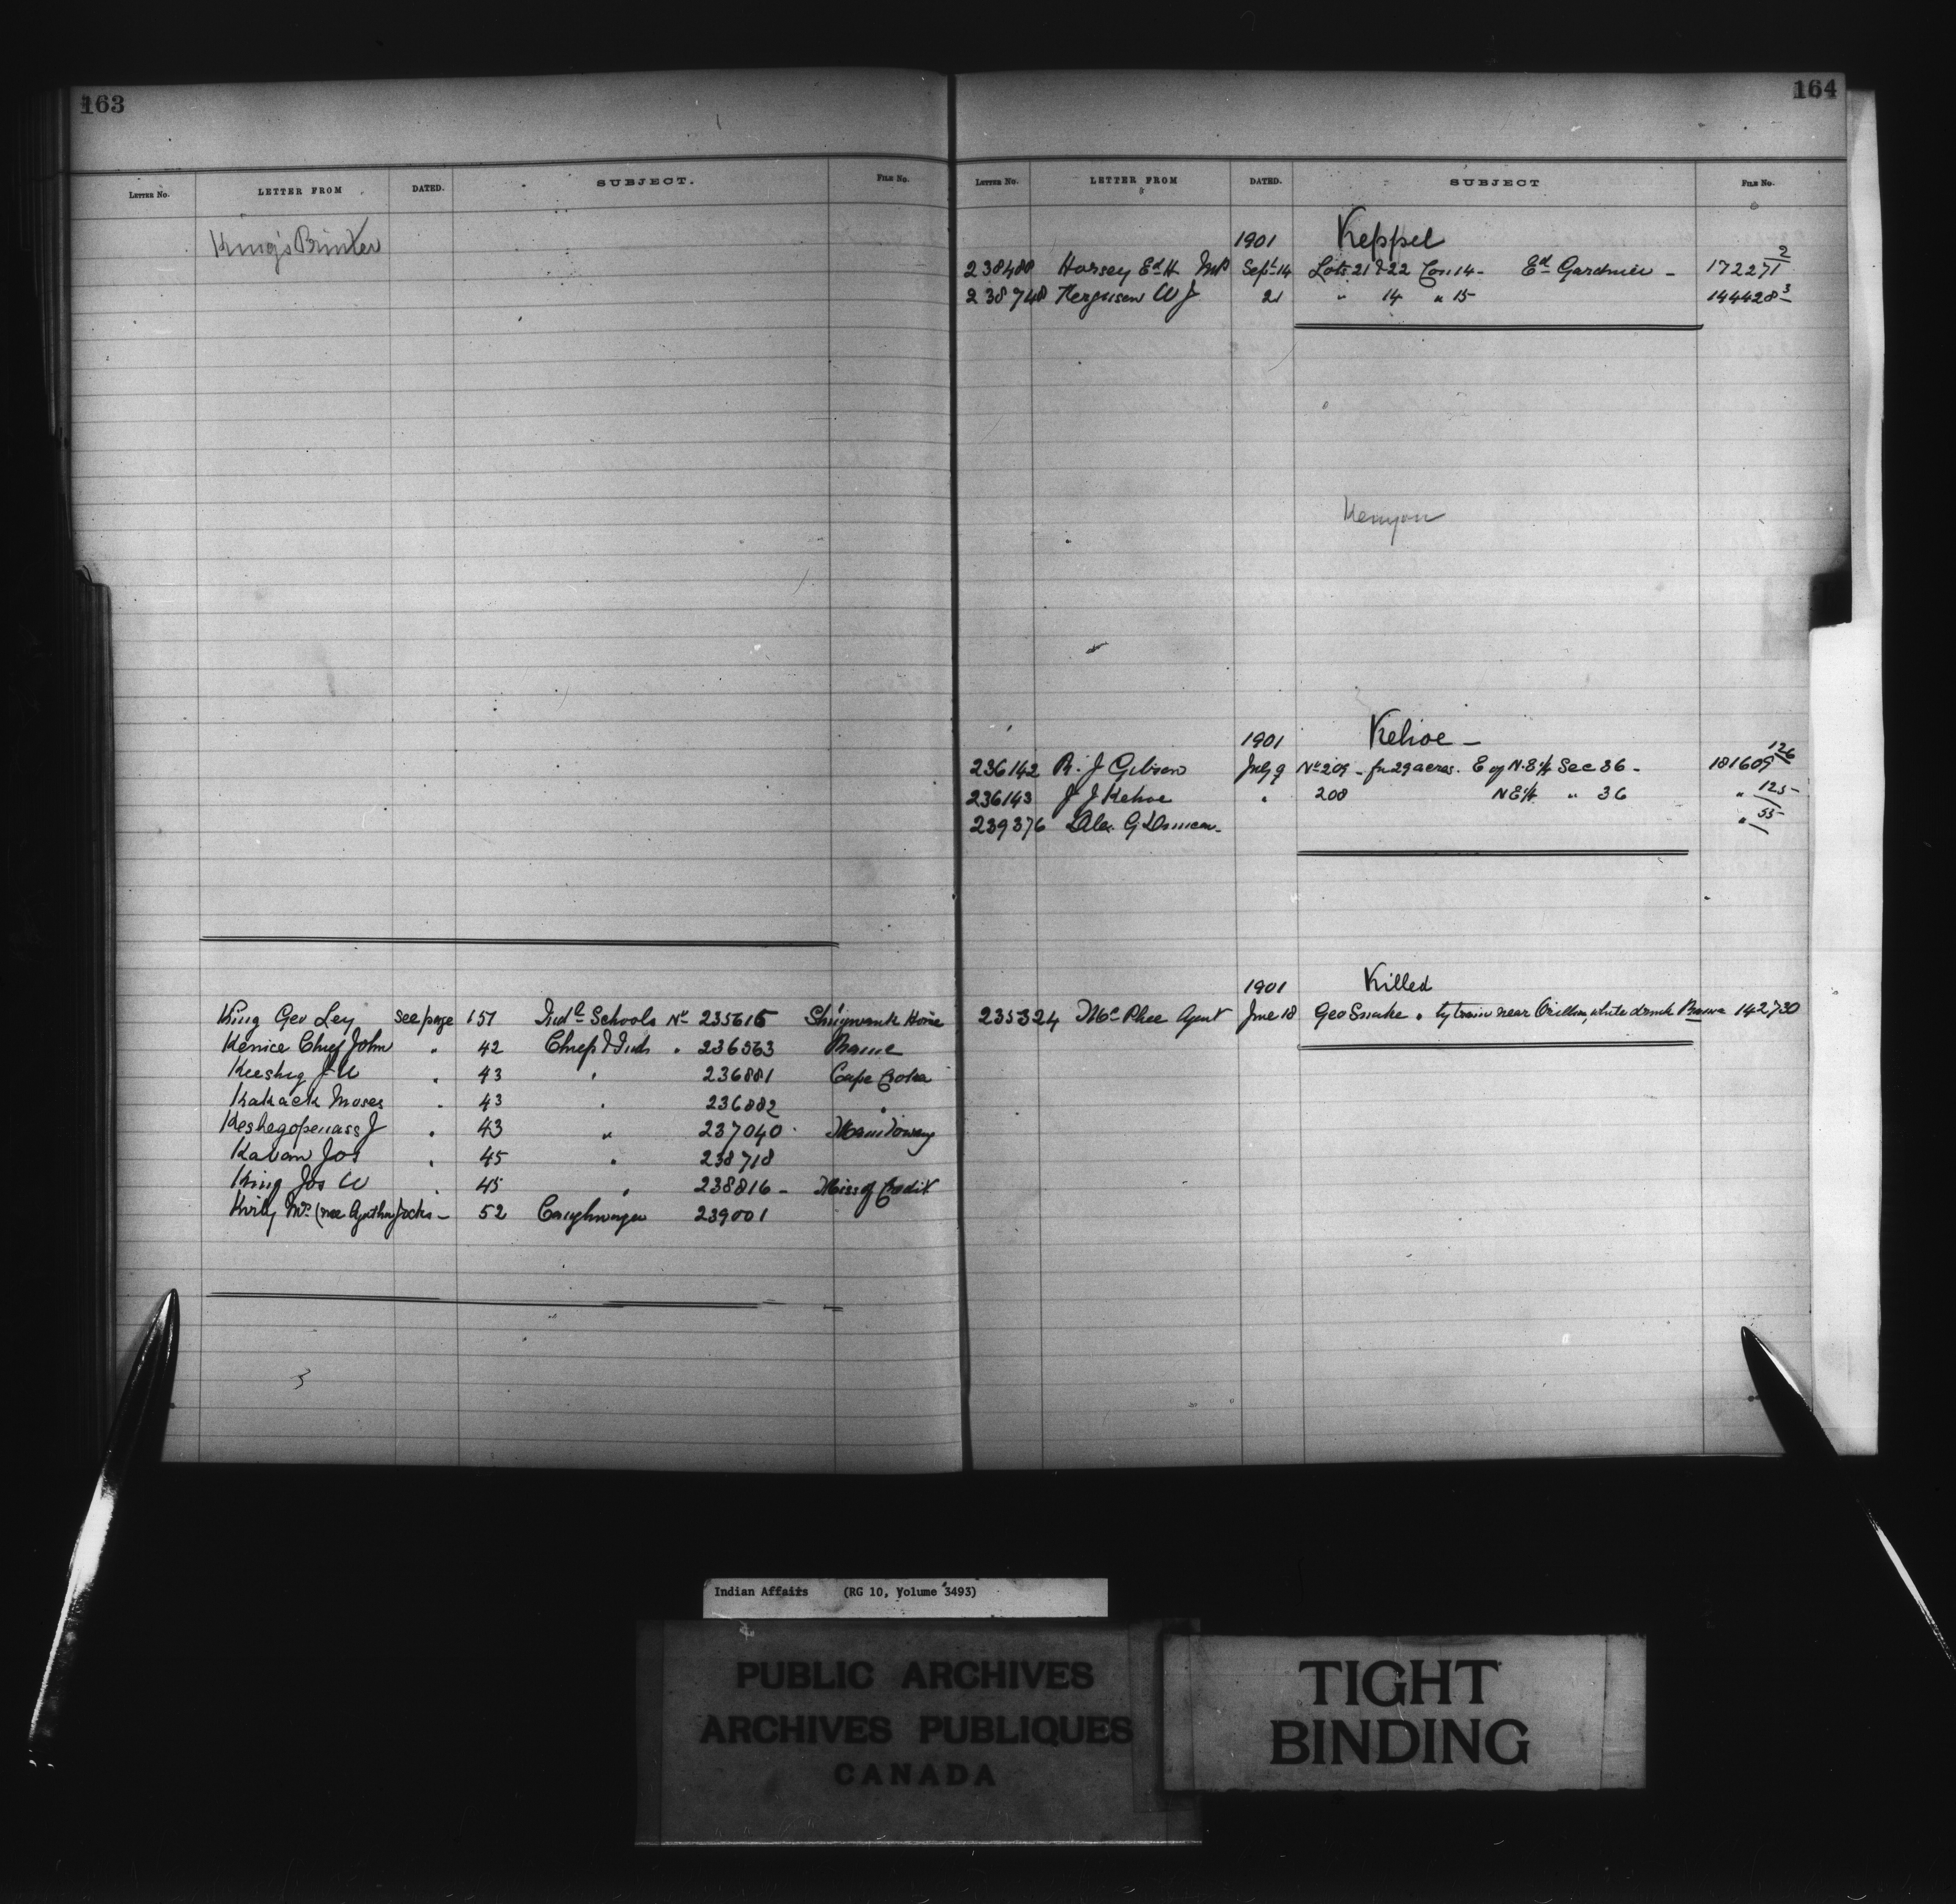 163
LETTER No. LETTER FROM DATED. SUBJECT. FILE No.
King's Printer
King Geo Ley see page 157 Indl Schools No 235615 Shingwauk Home
Kenice Chief John " 42 Chiefs & Inds " 236563 Rama
Keeshig J W " 43 " 236881 Cape Croker
Kakack Moses " 43 " 236882 "
Keshegopenass J " 43 " 237040 Manitowang
Kavam Jos " 45 " 238718
King Jos W " 45 " 238816 - Miss of Credit
Kirby Mrs (nee Agatha Jocks - 52 Caughnawaga 239001
164
LETTER No. LETTER FROM DATED. SUBJECT FILE No.
1901 Keppel
238480 Horsey Ed H MP Sept 14 Lots 21 & 22 Con 14 - Ed Gardiner - 172271 2
238748 Ferguson W J 21 " 14 " 15 144428 3
Kenyon
1901 Kehoe -
236142 R. J Gibson July 9 No 209 - for 29 acres. E of N.E 1/4 Sec 36 - 181609 126
236143 J J Kehoe " 208 N E 1/4 " 36 " 125
239376 Alex. G Duncan - " 55
1901 Killed
235324 McPhee Agent June 18 Geo Snake . by train near Orillia, while drunk Rama 142,730
Indian Affairs (RG 10, Volume 3493)
PUBLIC ARCHIVES
ARCHIVES PUBLIQUES
CANADA
TIGHT
BINDING